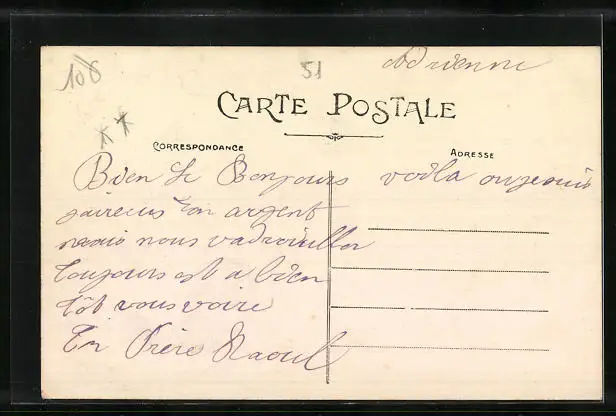 106
51
Adrienne
CARTE POSTALE
CORRESPONDANCE
ADRESSE
Bien le Bonjours voila ou je suis
ton argent
mais nous vadrouillon
toujours et a bien
tôt vous voire
Ton Frère Raoul